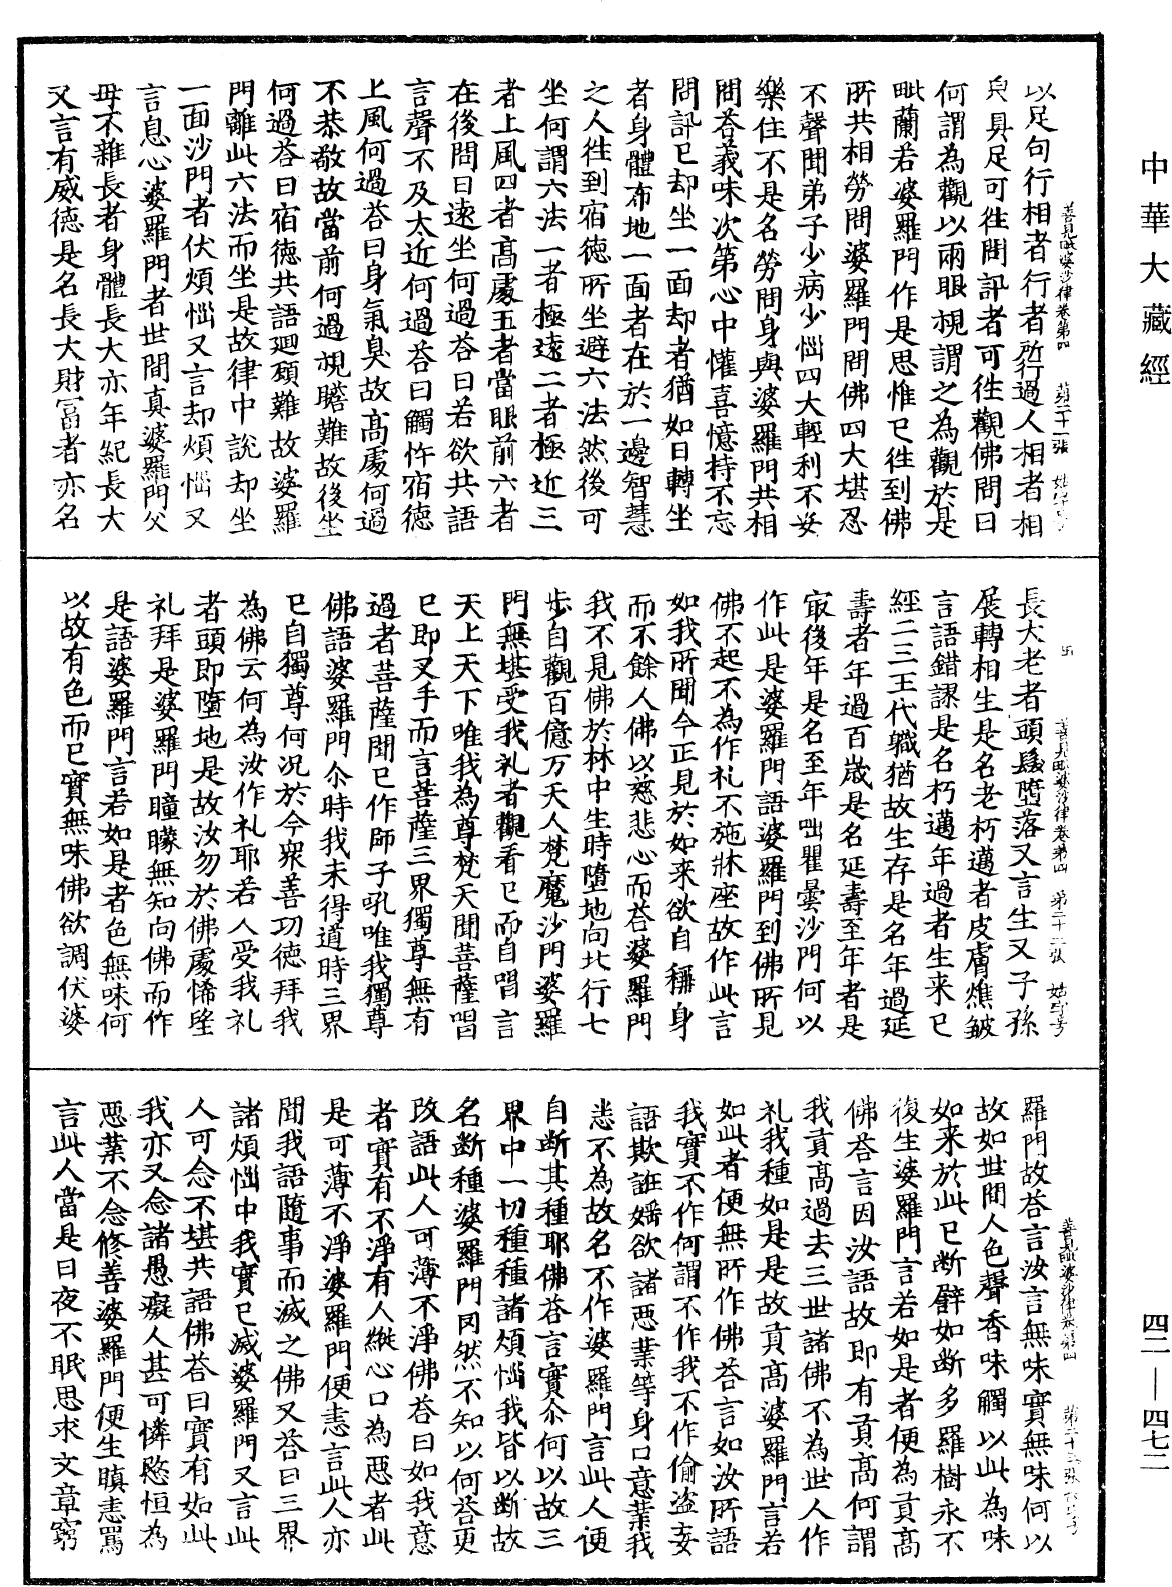 中華大藏經
以足句行相者行者所行過人相者相
貟具足可往問訊者可往觀佛問曰
何謂為觀以兩眼視謂之為觀於是
毗蘭若婆羅門作是思惟已往到佛
所共相勞問婆羅門問佛四大堪忍
不聲聞弟子少病少惱四大輕利不安
樂住不是名勞問身與婆羅門共相
問荅義味次第心中懽喜憶持不忘
問訊已却坐一面却者猶如日轉坐
者身體布地一面者在於一邊智慧
之人往到宿德所坐避六法然後可
坐何謂六法一者極遠二者極近三
者上風四者高處五者當眼前六者
在後問曰遠坐何過荅曰若欲共語
言聲不及太近何過荅曰觸忤宿德
上風何過荅曰身氣臭故高處何過
不恭敬故當前何過視瞻難故後坐
何過荅曰宿德共語迴頭難故婆羅
門離此六法而坐是故律中說却坐
一面沙門者伏煩惱又言却煩惱又
言息心婆羅門者世間真婆羅門父
母不雜長者身體長大亦年紀長大
又言有威德是名長大財富者亦名
善見毗婆沙律卷第四
長大老者頭髮墮落又言生又子孫
展轉相生是名老朽邁者皮膚燋皺
言語錯謬是名朽邁年過者生来已
經二三王代軄猶故生存是名年過延
壽者年過百歲是名延壽至年者是
㝡後年是名至年咄瞿曇沙門何以
作此是婆羅門語婆羅門到佛所見
佛不起不為作礼不施牀座故作此言
如我所聞今正見於如来欲自稱身
而不餘人佛以慈悲心而荅婆羅門
我不見佛於林中生時墮地向北行七
步自觀百億万天人梵魔沙門婆羅
門無堪受我礼者觀看已而自唱言
天上天下唯我為尊梵天聞菩薩唱
已即叉手而言菩薩三界獨尊無有
過者菩薩聞已作師子吼唯我獨尊
佛語婆羅門尒時我未得道時三界
已自獨尊何況於今衆善功德拜我
為佛云何為汝作礼耶若人受我礼
者頭即墮地是故汝勿於佛處悕望
礼拜是婆羅門瞳矇無知向佛而作
是語婆羅門言若如是者色無味何
以故有色而已實無味佛欲調伏婆
善見毗婆沙律卷第四
羅門故荅言汝言無味實無味何以
故如世間人色聲香味觸以此為味
如来於此已断譬如断多羅樹永不
復生婆羅門言若如是者便為貢高
佛荅言因汝語故即有貢高何謂
我貢高過去三世諸佛不為世人作
礼我種如是是故貢高婆羅門言若
如此者便無所作佛荅言如汝所語
我實不作何謂不作我不作偷盗妄
語欺誑婬欲諸惡業等身口意業我
悉不為故名不作婆羅門言此人便
自断其種耶佛荅言實尒何以故三
界中一切種種諸煩惱我皆以断故
名断種婆羅門罔然不知以何荅更
改語此人可薄不淨佛荅曰如我意
者實有不淨有人縱心口為惡者此
是可薄不淨婆羅門便恚言此人亦
聞我語隨事而滅之佛又荅曰三界
諸煩惱中我實已滅婆羅門又言此
人可念不堪共語佛荅曰實有如此
我亦又念諸愚癡人甚可憐愍恒為
惡業不念修善婆羅門便生瞋恚罵
言此人當是日夜不眠思求文章窮
善見毗婆沙律卷第四
四二—四七二